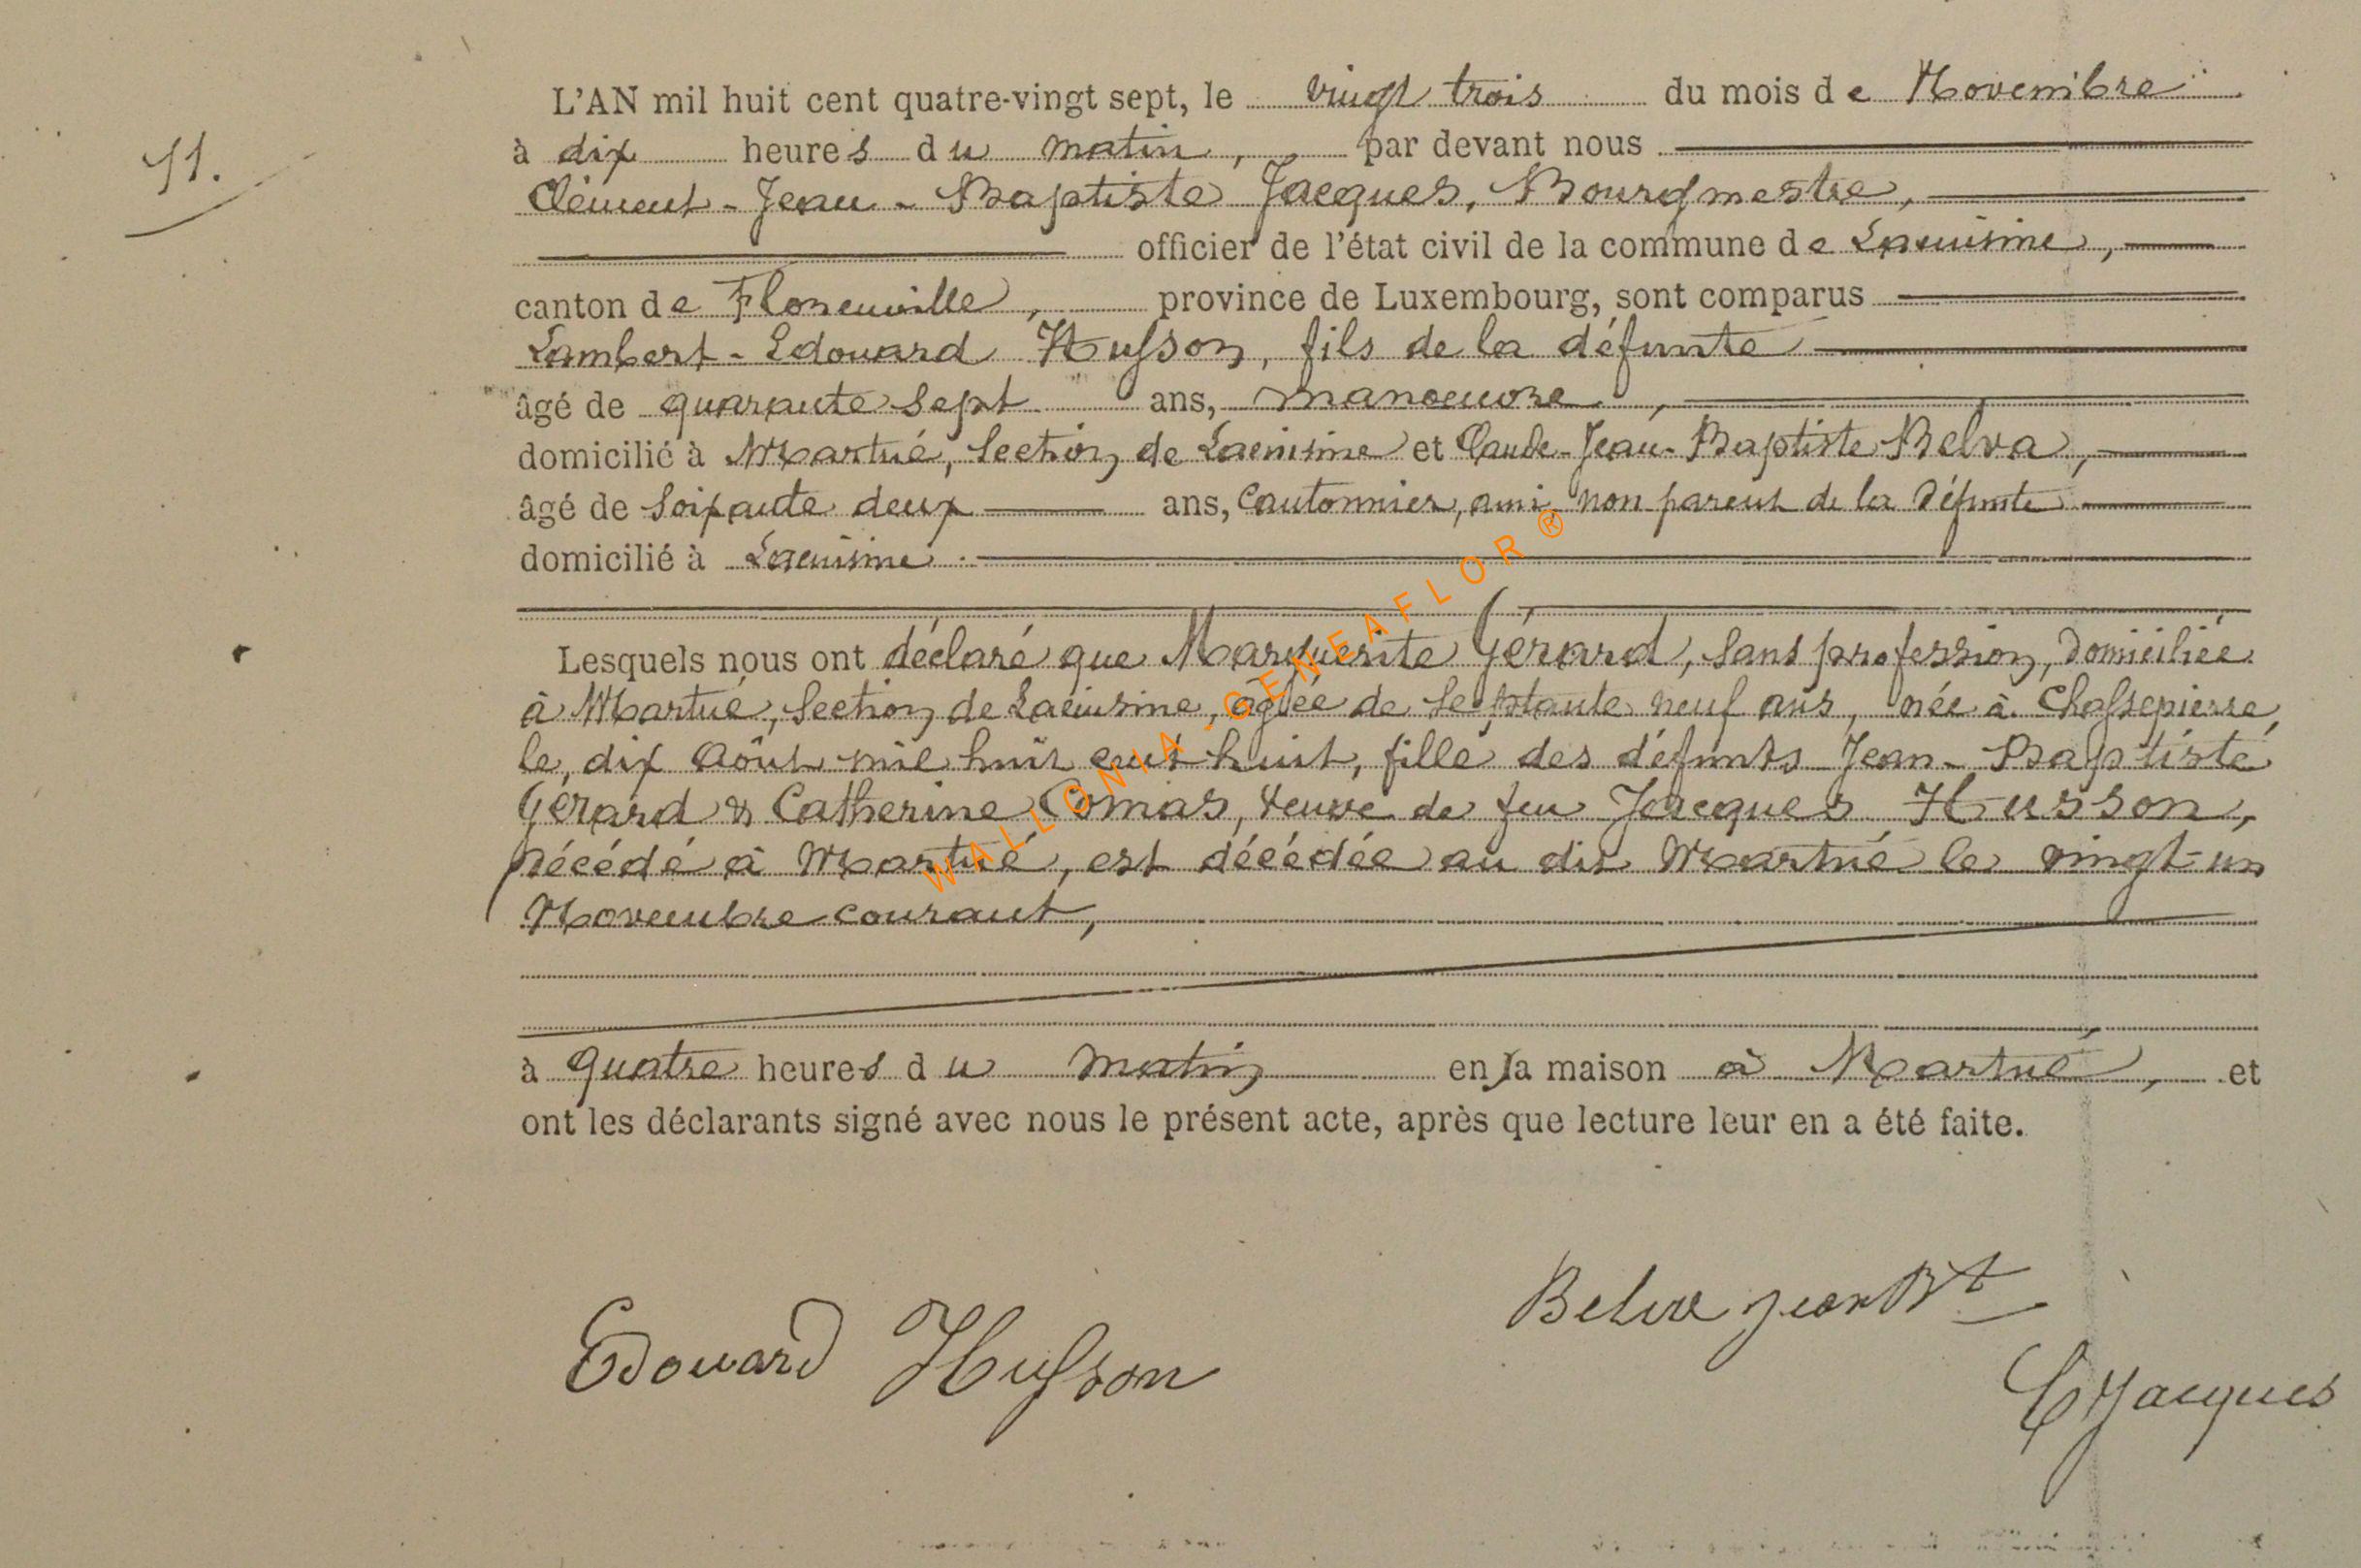 11.
L'AN mil huit cent quatre-vingt sept, le vingt trois du mois de Novembre
à dix heures du matin, par devant nous
Clément - Jean - Baptiste Jacques, Bourgmestre,
officier de l'état civil de la commune de Lacuisine,
canton de Florenville, province de Luxembourg, sont comparus
Lambert - Edouard Husson, fils de la défunte
âgé de quarante sept ans, manoeuvre,
domicilié à Martué, Section de Lacuisine et Claude-Jean-Baptiste Belva,
âgé de Soixante deux ans, Cantonnier, ami non parent de la Défunte
domicilié à Lacuisine.
Lesquels nous ont déclaré que Marguerite Gérard, Sans profession, Domiciliée
à Martué, Section de Lacuisine, âgée de Septante neuf ans, née à Chassepierre,
le, dix Août mil huit cent huit, fille des défunts Jean - Baptiste
Gérard & Catherine Comas, Veuve de feu Jacques Husson,
Décédé à Martué, est décédée au dit Martué le vingt-un
Novembre courant,
à quatre heures du matin en la maison à Martué, et
ont les déclarants signé avec nous le présent acte, après que lecture leur en a été faite.
Belva jean Bt
Edouard Husson
C Jacques
WALLONIA-GENEAFLOR®